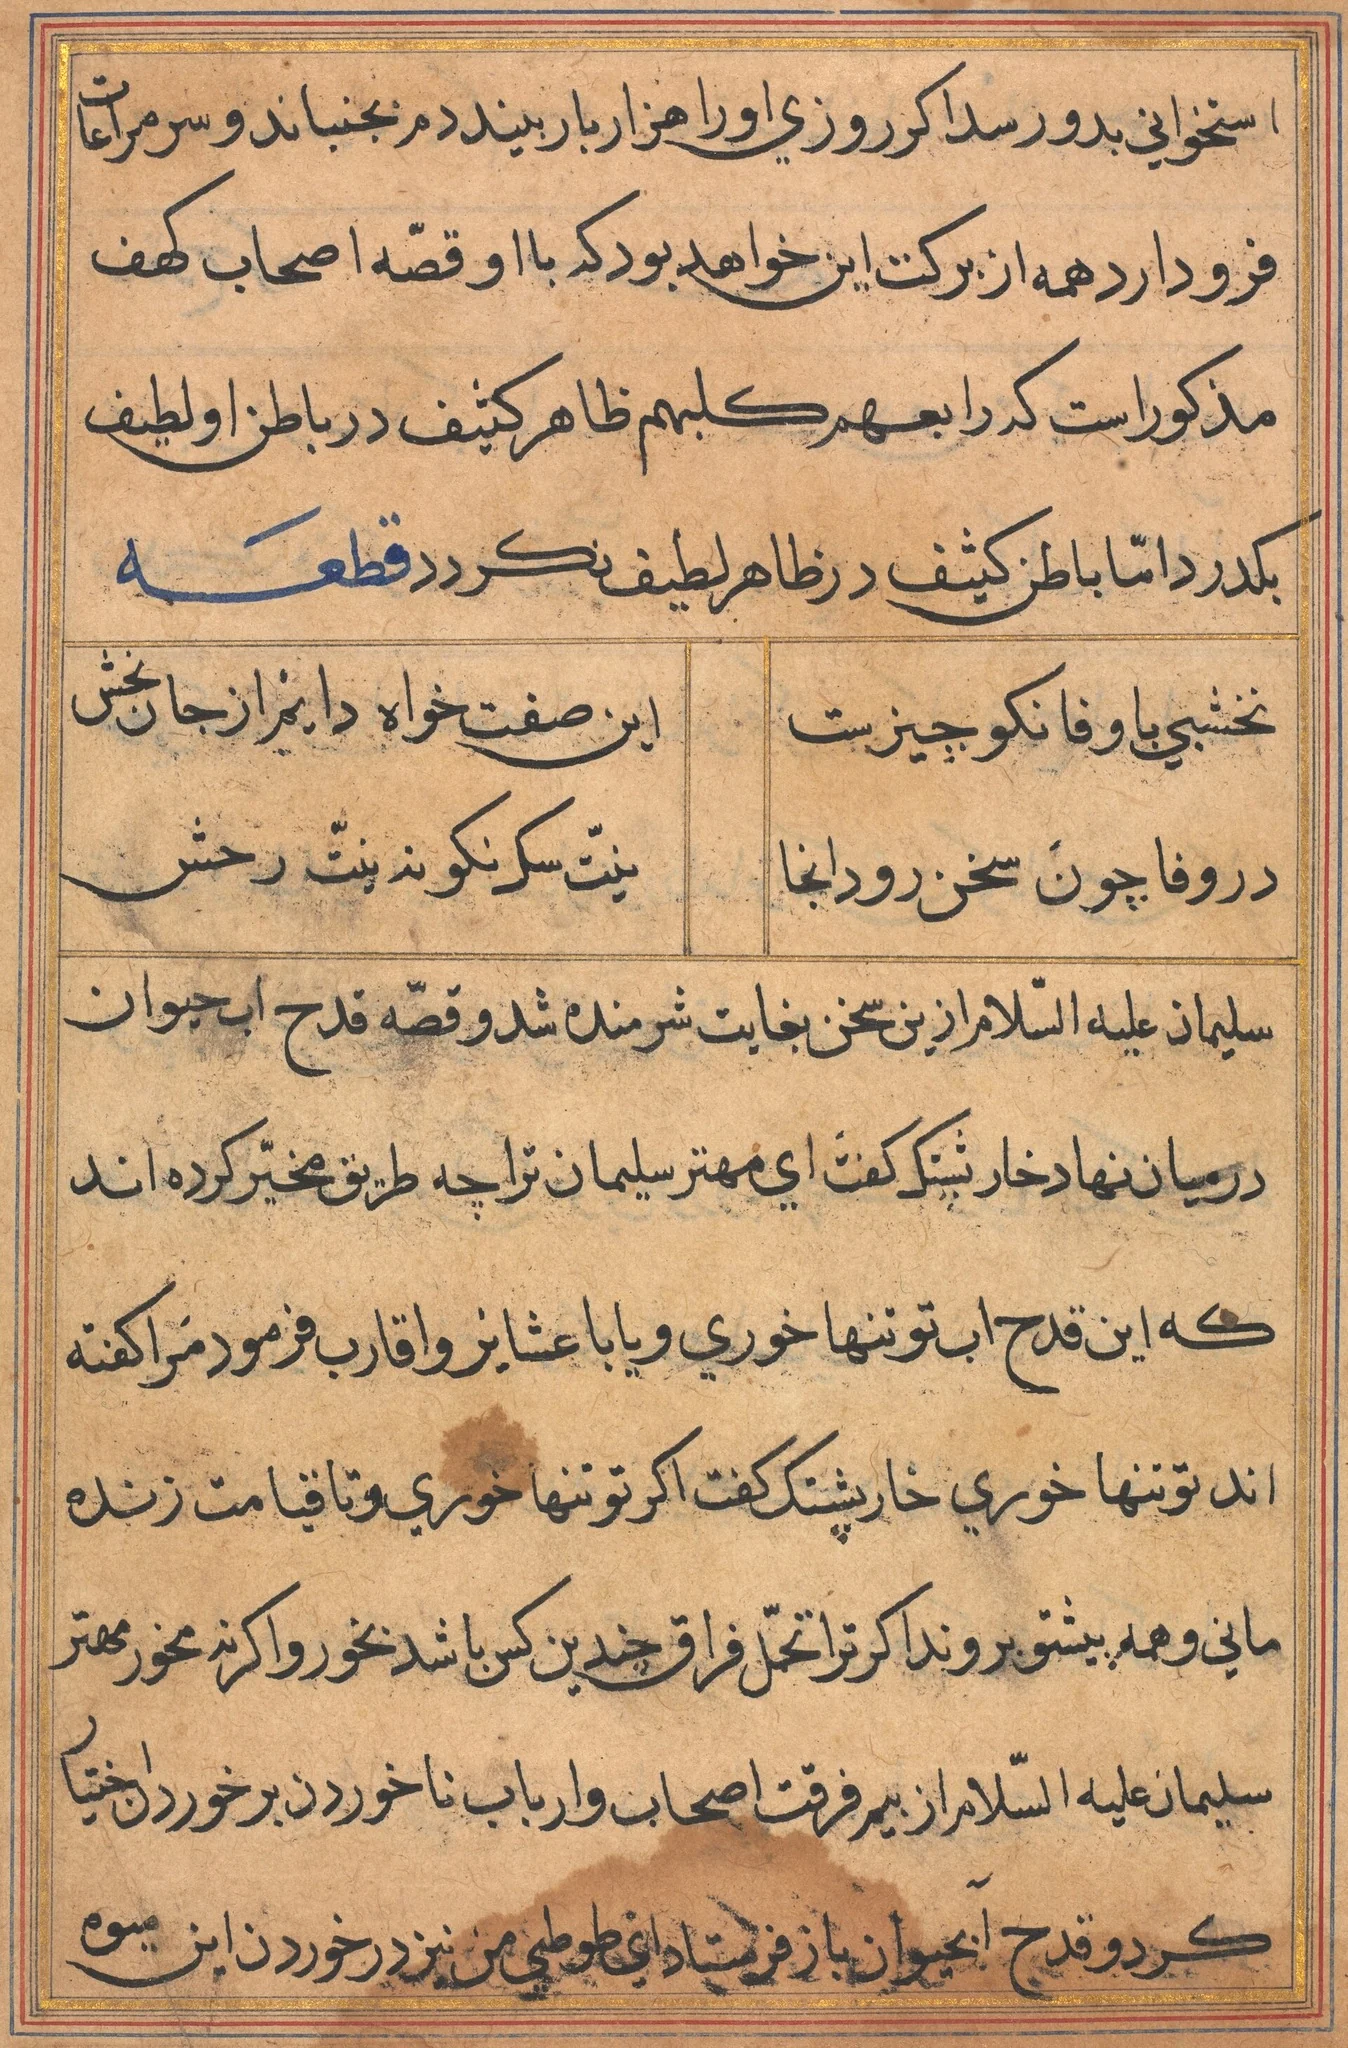 استخواني بدو رسد اكر روزي او را هزار بار بيند دم بجنباند و سر مراعات
فرو دارد همه از بركت اين خواهد بود كه با او قصّه اصحاب كهف
مذكور است كه رابعهم كلبهم ظاهر كثيف در باطن او لطيف
بكدرد امّا باطن كثيف در ظاهر لطيف نكردد قطعه
نخشبي با وفا نكو چيزست اين صفت خواه دايم از جان بخش
در وفا چون سخن رود انجا نيّت سك نكو نه نيّت رخش
سليمان عليه السّلام ازين سخن بغايت شرمنده شد و قصّه قدح اب حيوان
درميان نهاد خارپشتك كفت اي مهتر سليمان ترا چه طريق مخيّر كرده اند
كه اين قدح اب تو تنها خوري و يا با عشاير و اقارب فرمود مرا كفته
اند تو تنها خوري خارپشتك كفت اكر تو تنها خوري و تا قيامت زنده
ماني و همه پيشتو بروند اكر ترا تحمّل فراق چندين كس باشد بخور و اكر نه مخور مهتر
سليمان عليه السّلام از بيم فرقت اصحاب و ارباب ناخوردن بر خوردن اختيار
كرد و قدح آبحيوان باز فرستاد اي طوطي من نيز در خوردن اين ميوه